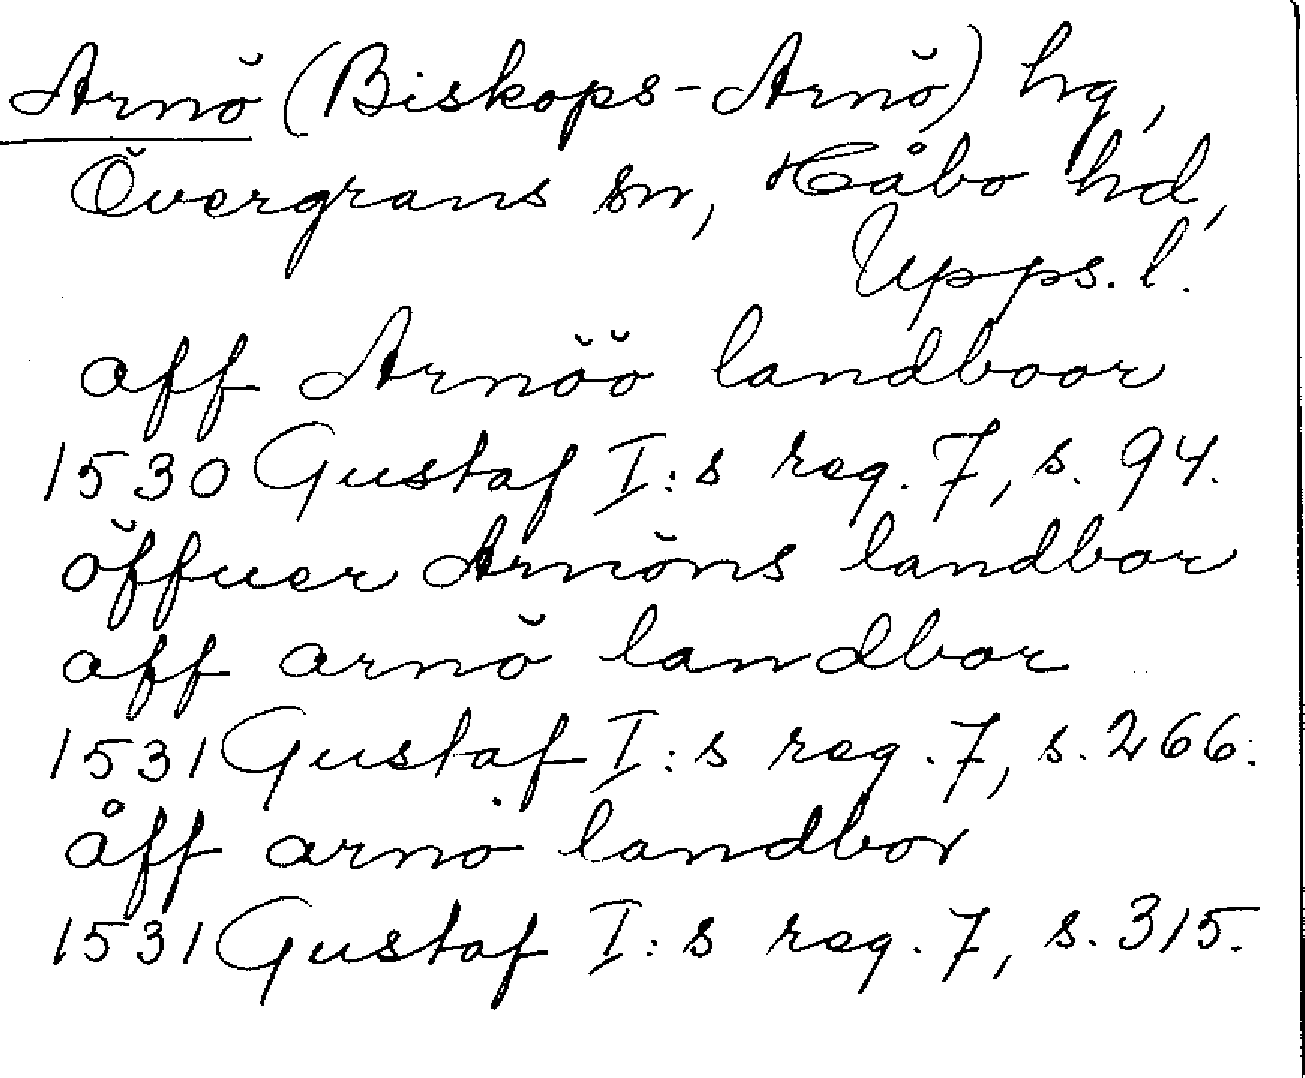 Arnö (Biskops-Arnö) hg,
Övergrans sn, Håbo hd,
Upps. l.
aff Arnöö landboor
1530 Gustaf I:s reg. 7, s. 94.
öffuer Arnöns landbor
aff arnö landbor
1531 Gustaf I:s reg. 7, s. 266.
åff arnö landbor
1531 Gustaf I:s reg. 7, s. 315.